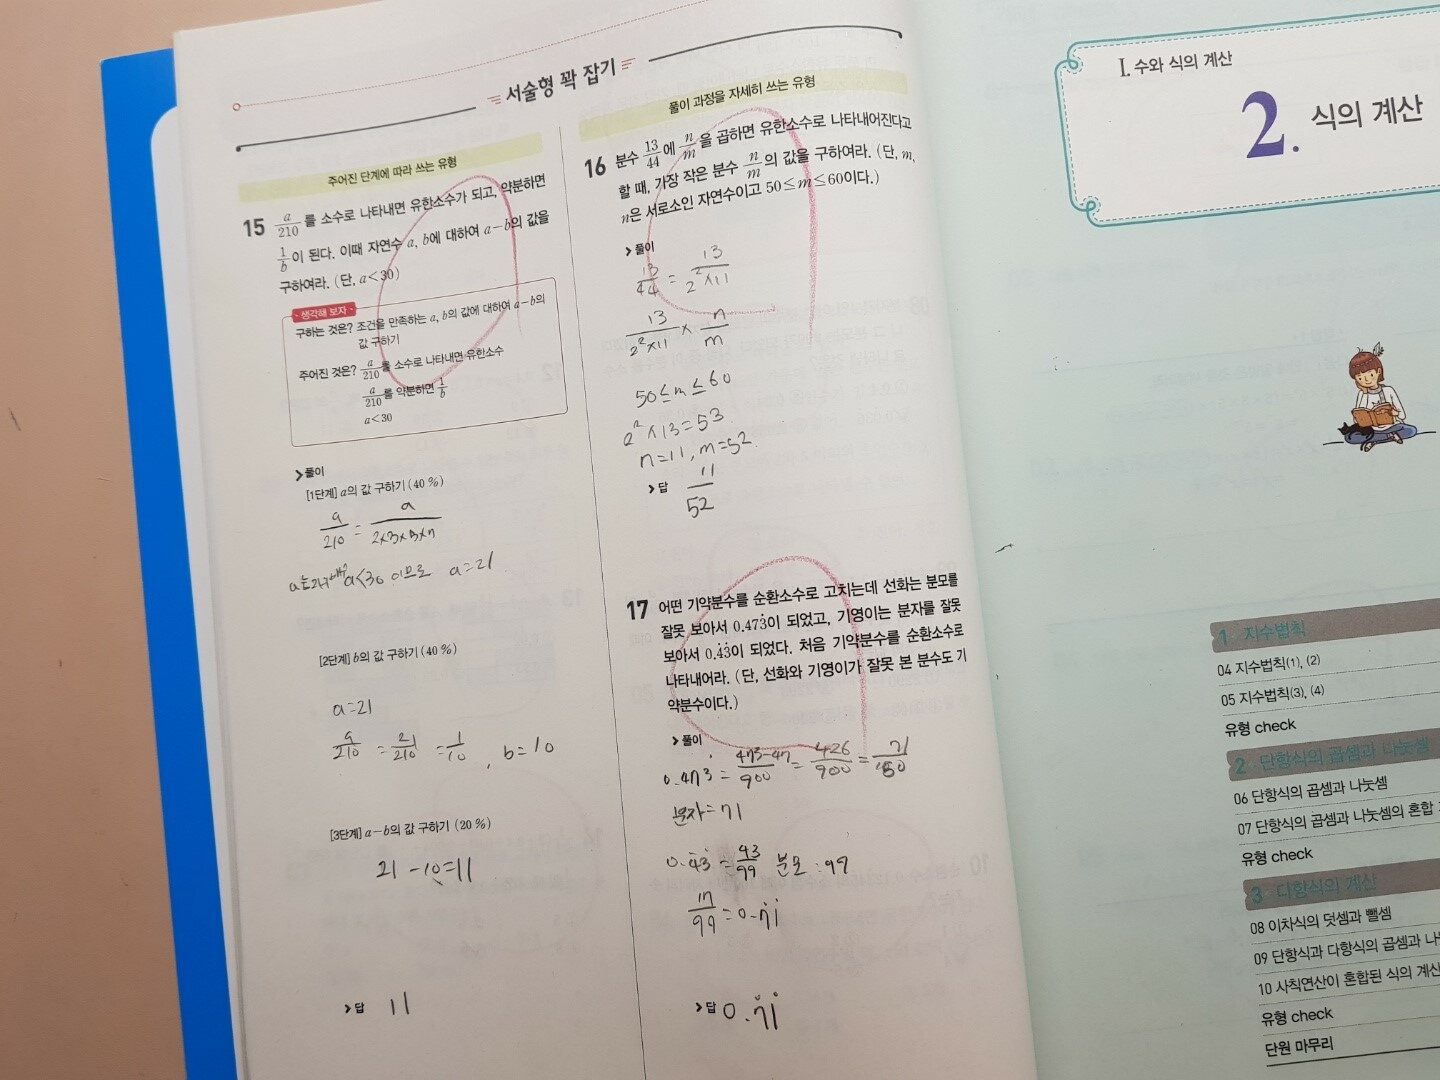 서술형 꽉 잡기
주어진 단계에 따라 쓰는 유형
15 a/210 를 소수로 나타내면 유한소수가 되고, 약분하면
1/b 이 된다. 이때 자연수 a, b에 대하여 a-b의 값을
구하여라. (단, a<30)
생각해 보자
구하는 것은? 조건을 만족하는 a, b의 값에 대하여 a-b의
값 구하기
주어진 것은? a/210 를 소수로 나타내면 유한소수
a/210 를 약분하면 1/b
a<30
풀이
[1단계] a의 값 구하기 (40 %)
a/210 = a/2×3×5×7
a<30 이므로 a=21
[2단계] b의 값 구하기 (40 %)
a=21
a/210 = 21/210 = 1/10 , b=10
[3단계] a-b의 값 구하기 (20 %)
21-10=11
답 11
풀이 과정을 자세히 쓰는 유형
16 분수 13/44 에 n/m 을 곱하면 유한소수로 나타내어진다고
할 때, 가장 작은 분수 n/m 의 값을 구하여라. (단, m,
n은 서로소인 자연수이고 50≤m≤60이다.)
풀이
13/44 = 13/2²×11
13/2²×11 × n/m
50≤m≤60
2²×13=53
n=11, m=52.
답 11/52
17 어떤 기약분수를 순환소수로 고치는데 선화는 분모를
잘못 보아서 0.473̇이 되었고, 기영이는 분자를 잘못
보아서 0.4̇3̇이 되었다. 처음 기약분수를 순환소수로
나타내어라. (단, 선화와 기영이가 잘못 본 분수도 기
약분수이다.)
풀이
0.473̇ = 473-47/900 = 426/900 = 71/150
분자=71
0.4̇3̇ = 43/99 분모:99
71/99 = 0.7̇1̇
답 0.7̇1̇
I. 수와 식의 계산
2. 식의 계산
1 지수법칙
04 지수법칙(1), (2)
05 지수법칙(3), (4)
유형 check
2 단항식의 곱셈과 나눗셈
06 단항식의 곱셈과 나눗셈
07 단항식의 곱셈과 나눗셈의 혼합
유형 check
3 다항식의 계산
08 이차식의 덧셈과 뺄셈
09 단항식과 다항식의 곱셈과
10 사칙연산이 혼합된 식의 계산
유형 check
단원 마무리